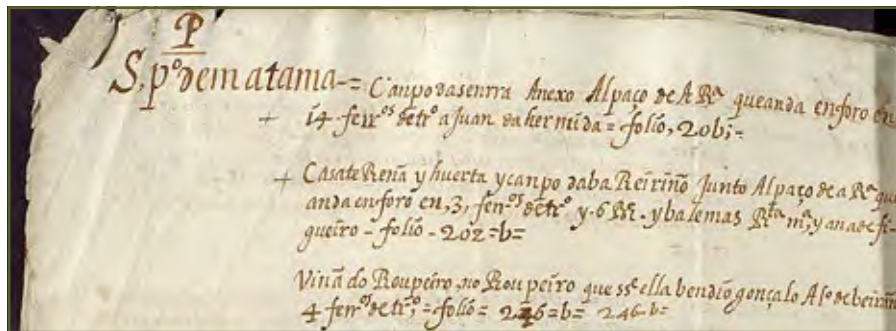 P
S, pº de matama = Canpo da senrra Anexo Al paço de A Rª que anda en foro en
+ 14 ferrºs de trº a Juan da hermida = folio, 20b; =
+ Casa terreña y huerta y canpo daba Reiriño Junto Al paço de a Rª que
anda en foro en, 3, ferrºs de trº y 6 RR. y bale mas Rta mª, y ana de fi-
gueiro - folio - 202 = b =
Viña do Roupeiro no Roupeiro que sse ella bendio gonçalo Alº de beiriño
4 ferrºs de trº, = folio = 246 = b = 246. b =